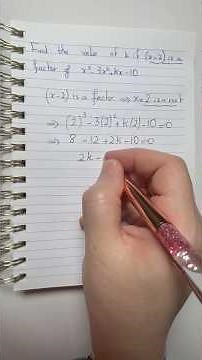 Find the value of k if (x-2) is a
factor of x³-3x²+kx-10
(x-2) is a factor ⇒ x=2 is a root
⇒ (2)³-3(2)²+k(2)-10=0
⇒ 8-12+2k-10=0
2k=